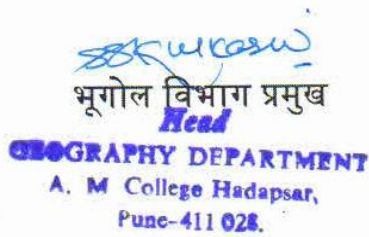 भूगोल विभाग प्रमुख
Head
GEOGRAPHY DEPARTMENT
A. M College Hadapsar,
Pune-411 028.